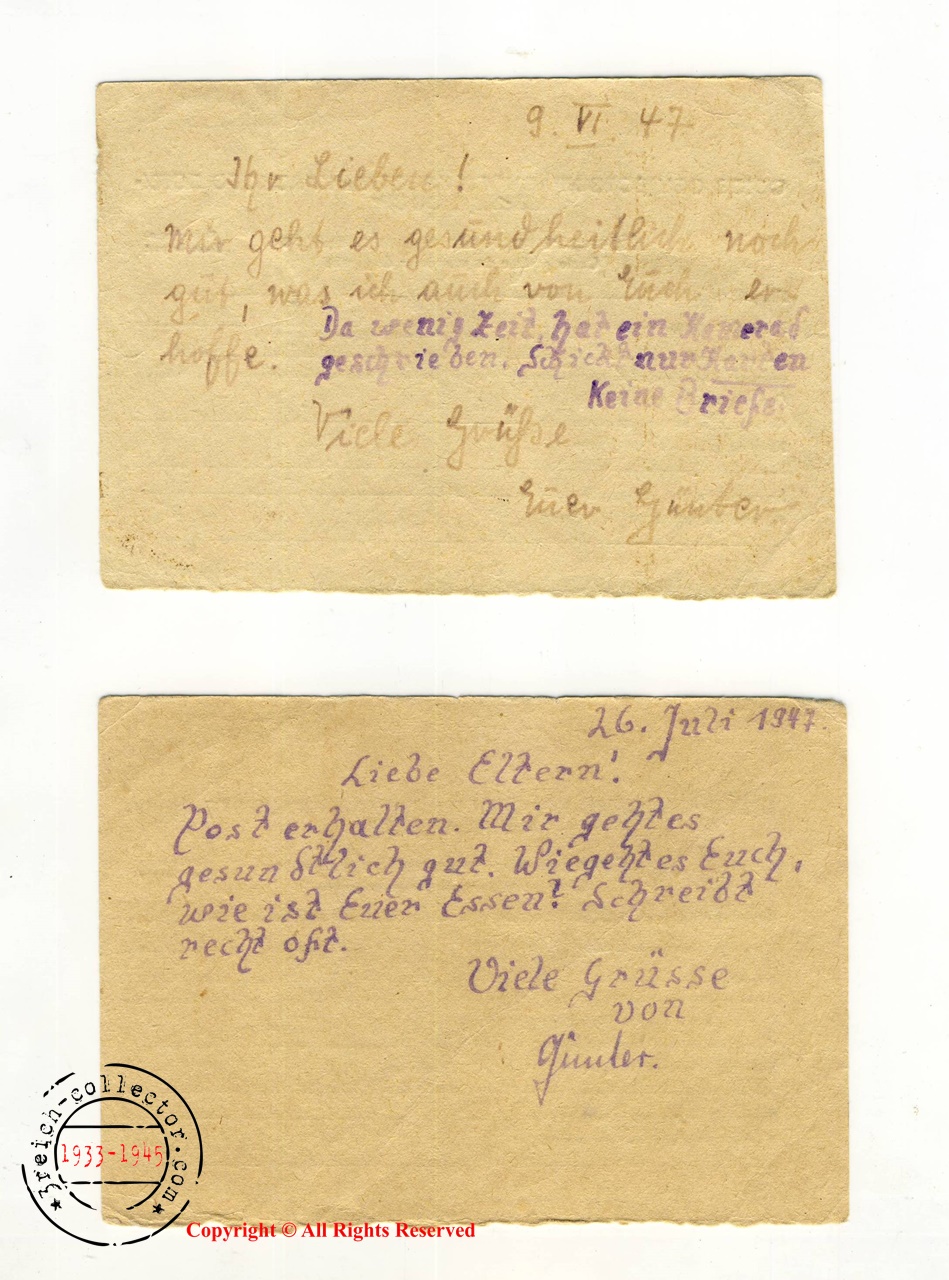 9. VI. 47
Ihr Lieben!
Mir geht es gesundheitlich noch
gut, was ich auch von Euch er-
hoffe.
Da wenig Zeit, hat ein Kamerad
geschrieben. Schickt nur Karten
Keine Briefe.
Viele Grüße
Euer Günter.
26. Juli 1947.
Liebe Eltern!
Post erhalten. Mir geht es
gesundtlich gut. Wie geht es Euch,
wie ist Euer Essen? Schreibt
recht oft.
Viele Grüsse
von
Günter.
3reich-collector.com
1933-1945
Copyright © All Rights Reserved